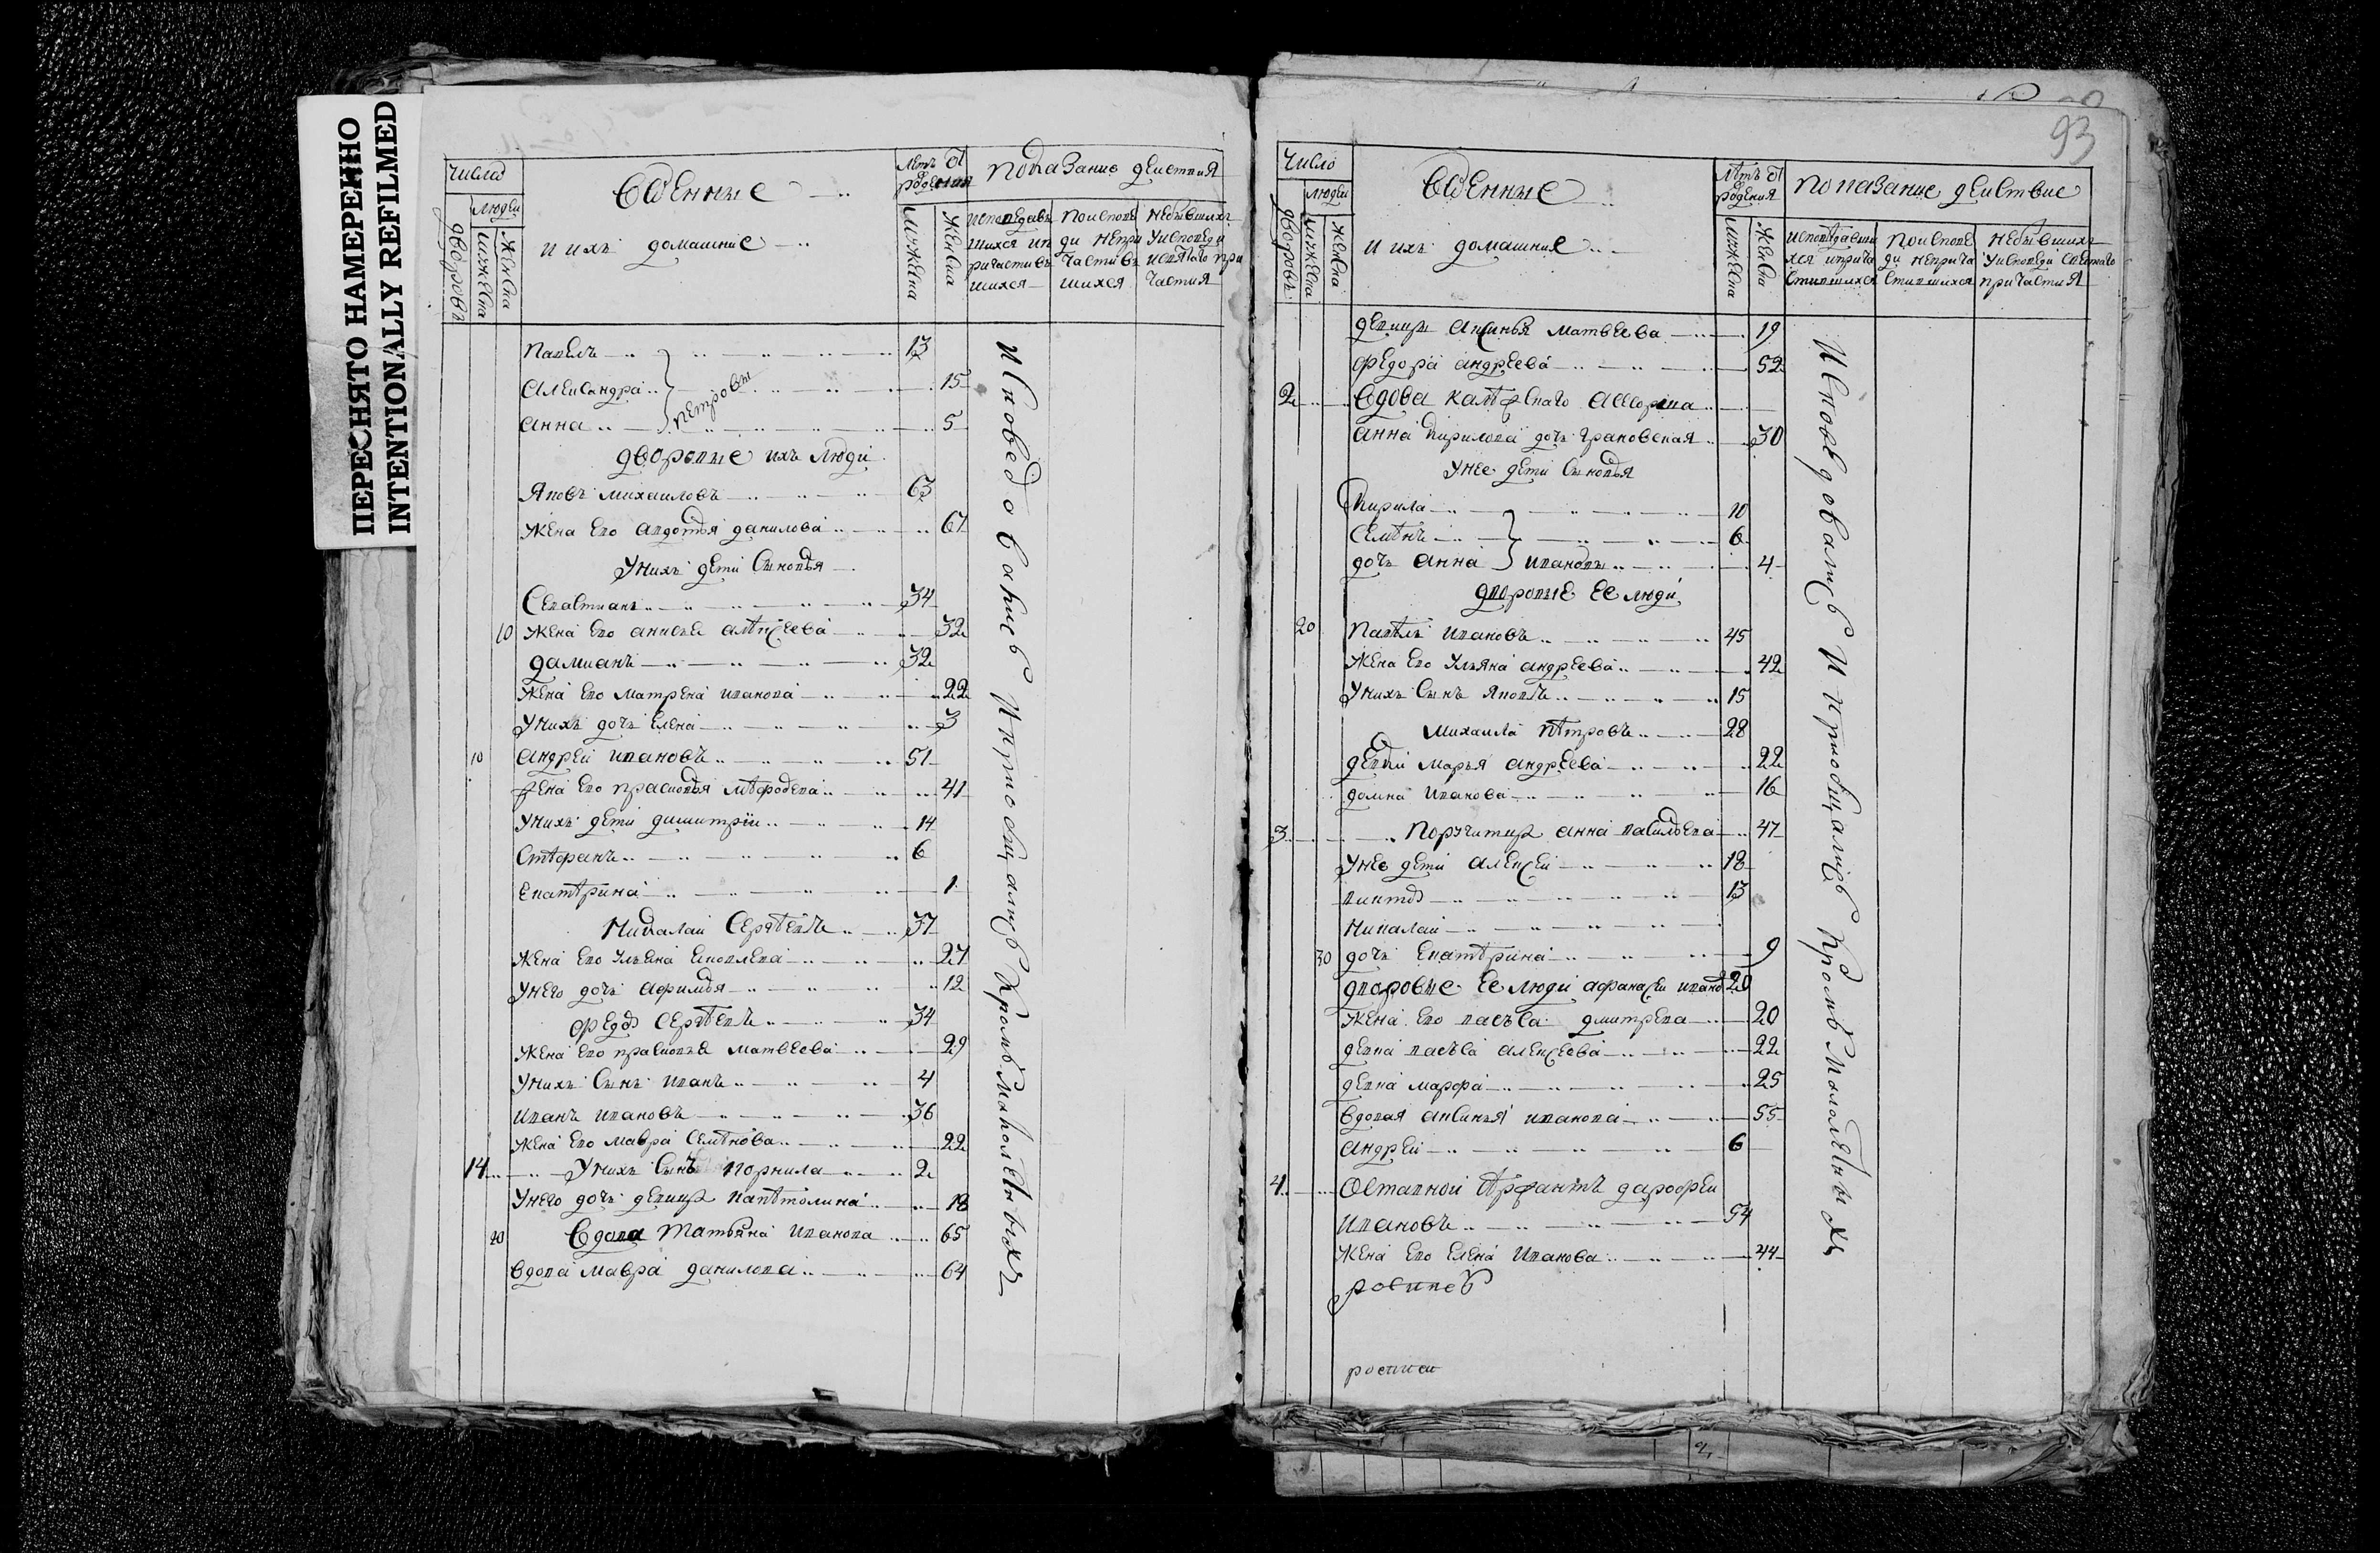 ПЕРЕСНЯТО НАМЕРЕННО
INTENTIONALLY REFILMED
Число
дворовъ
людеи
мужеска
женска
Военные
и ихъ домашние
Летъ от рождения
мужеска
женска
показание деиствия
исповедав
шихся и п
ричастив
шихся
по испове
ди непри
частив
шихся
небывшихъ
у исповеди
и святаго при
частия
Павелъ 13
Александра 15
Анна 5
Петровы
дворовые ихъ люди
Яковъ михаиловъ 63
жена ево авдотья данилова 61
у нихъ дети сыновья
Севастианъ 34
10 жена ево анисья алексеева 32
дамианъ 32
жена ево матрена иванова 22
у нихъ дочь елена 3
10 андреи ивановъ 51
жена ево прасковья мефодева 41
у нихъ дети димитрии 14
Стефанъ 6
екатерина 1
николаи Сергеевъ 37
жена ево ульяна яковлева 27
у него дочь афимья 12
федор Сергеевъ 34
жена ево прасковья матвеева 29
у нихъ сынъ иванъ 4
иванъ ивановъ 36
жена ево мавра семенова 22
14 у нихъ сынъ корнила 2
у него дочь девица капетолина 18
20 вдова татьяна иванова 65
вдова мавра данилова 64
исповедовались и приобщались кроме малолетныхъ
93
Число
дворовъ
людеи
мужеска
женска
военные
и ихъ домашния
Летъ от рождения
мужеска
женска
показание деиствие
исповедавши
хся и прича
стившихся
по испове
ди неприча
стившихся
небывшихъ
у исповеди святаго
причастия
девица аксинья матвеева 19
федора андреева 52
2 вдова
анна кирилова дочь грановская 30
у нее дети сыновья
кирила 10
Семенъ 6
дочь анна ивановы 4
дворовые ее люди
20 павелъ ивановъ 45
жена ево ульяна андреева 42
у нихъ сынъ яковъ 15
михаила петровъ 28
девки марья андреева 22
домна иванова 16
3 поручица анна васильева 47
у нее дети алексеи 18
виктор 13
николаи
30 дочь екатерина 9
дворовые ее люди афанасеи иванов 20
жена ево васъса дмитрева 20
девка васъса алексеева 22
девка марфа 25
вдовая аксинья иванова 55
андреи 6
4 Оставнои сержантъ дарофеи
ивановъ 54
жена ево елена иванова 44
росписе
росписи
исповедовались и приобщались кроме малолетных